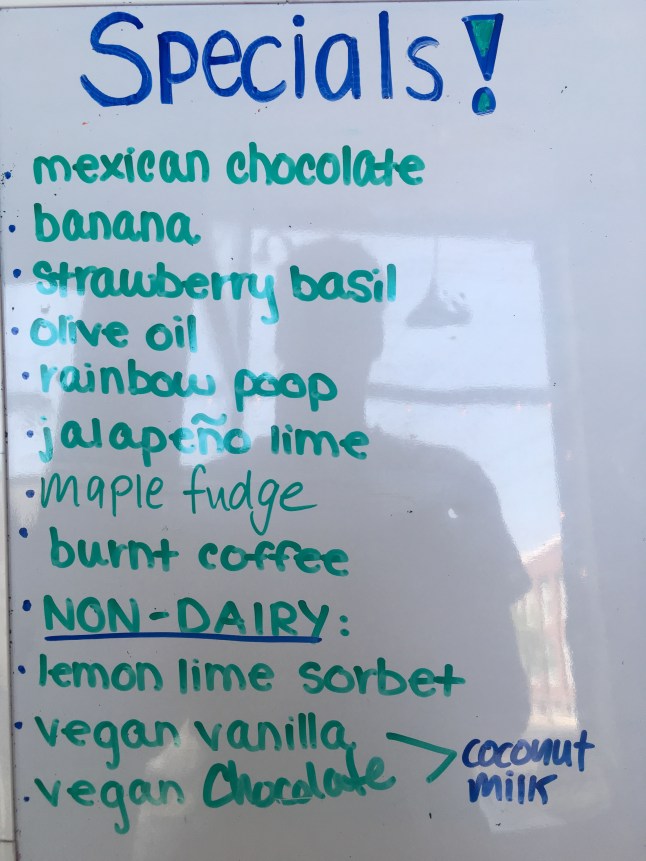 Specials!
• mexican chocolate
• banana
• strawberry basil
• olive oil
• rainbow poop
• jalapeño lime
• maple fudge
• burnt coffee
• NON-DAIRY:
• lemon lime sorbet
• vegan vanilla
• vegan Chocolate
coconut
milk